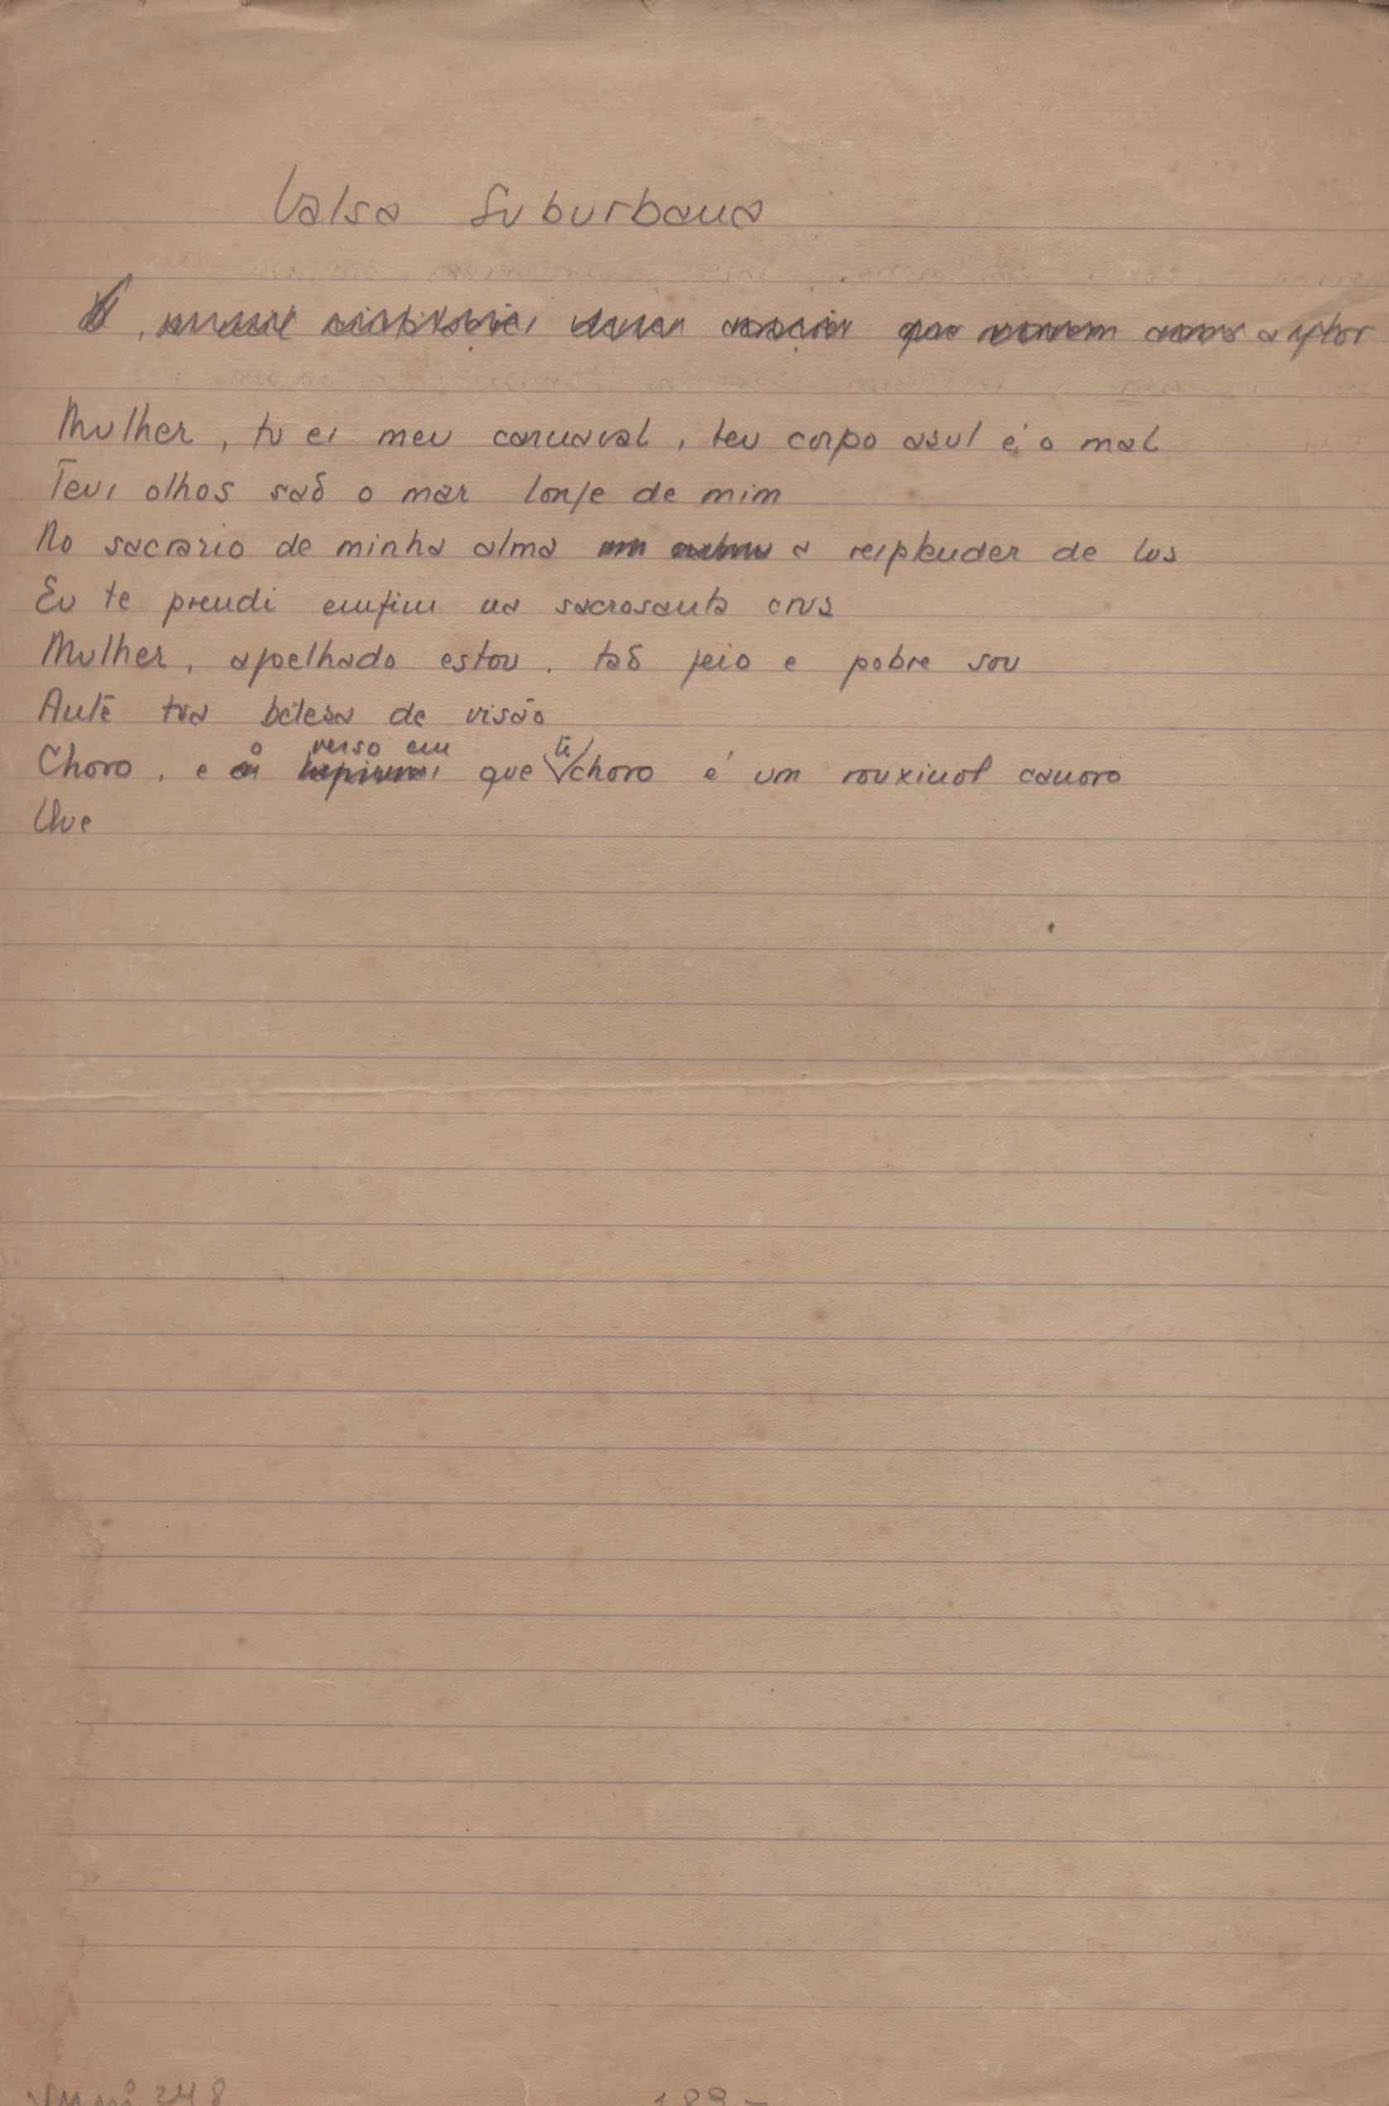 Valsa Suburbana
que
Mulher, tu es meu carnaval, teu corpo asul é o mal
Teus olhos saõ o mar lonje de mim
No sacrario de minha alma a resplender de lus
Eu te prendi emfim na sacrosanta crus
Mulher, ajoelhado estou. taõ feio e pobre sou
Ante tua belesa de visão
o verso em te
Choro, e que choro é um rouxinol canoro
Que
248
189 -